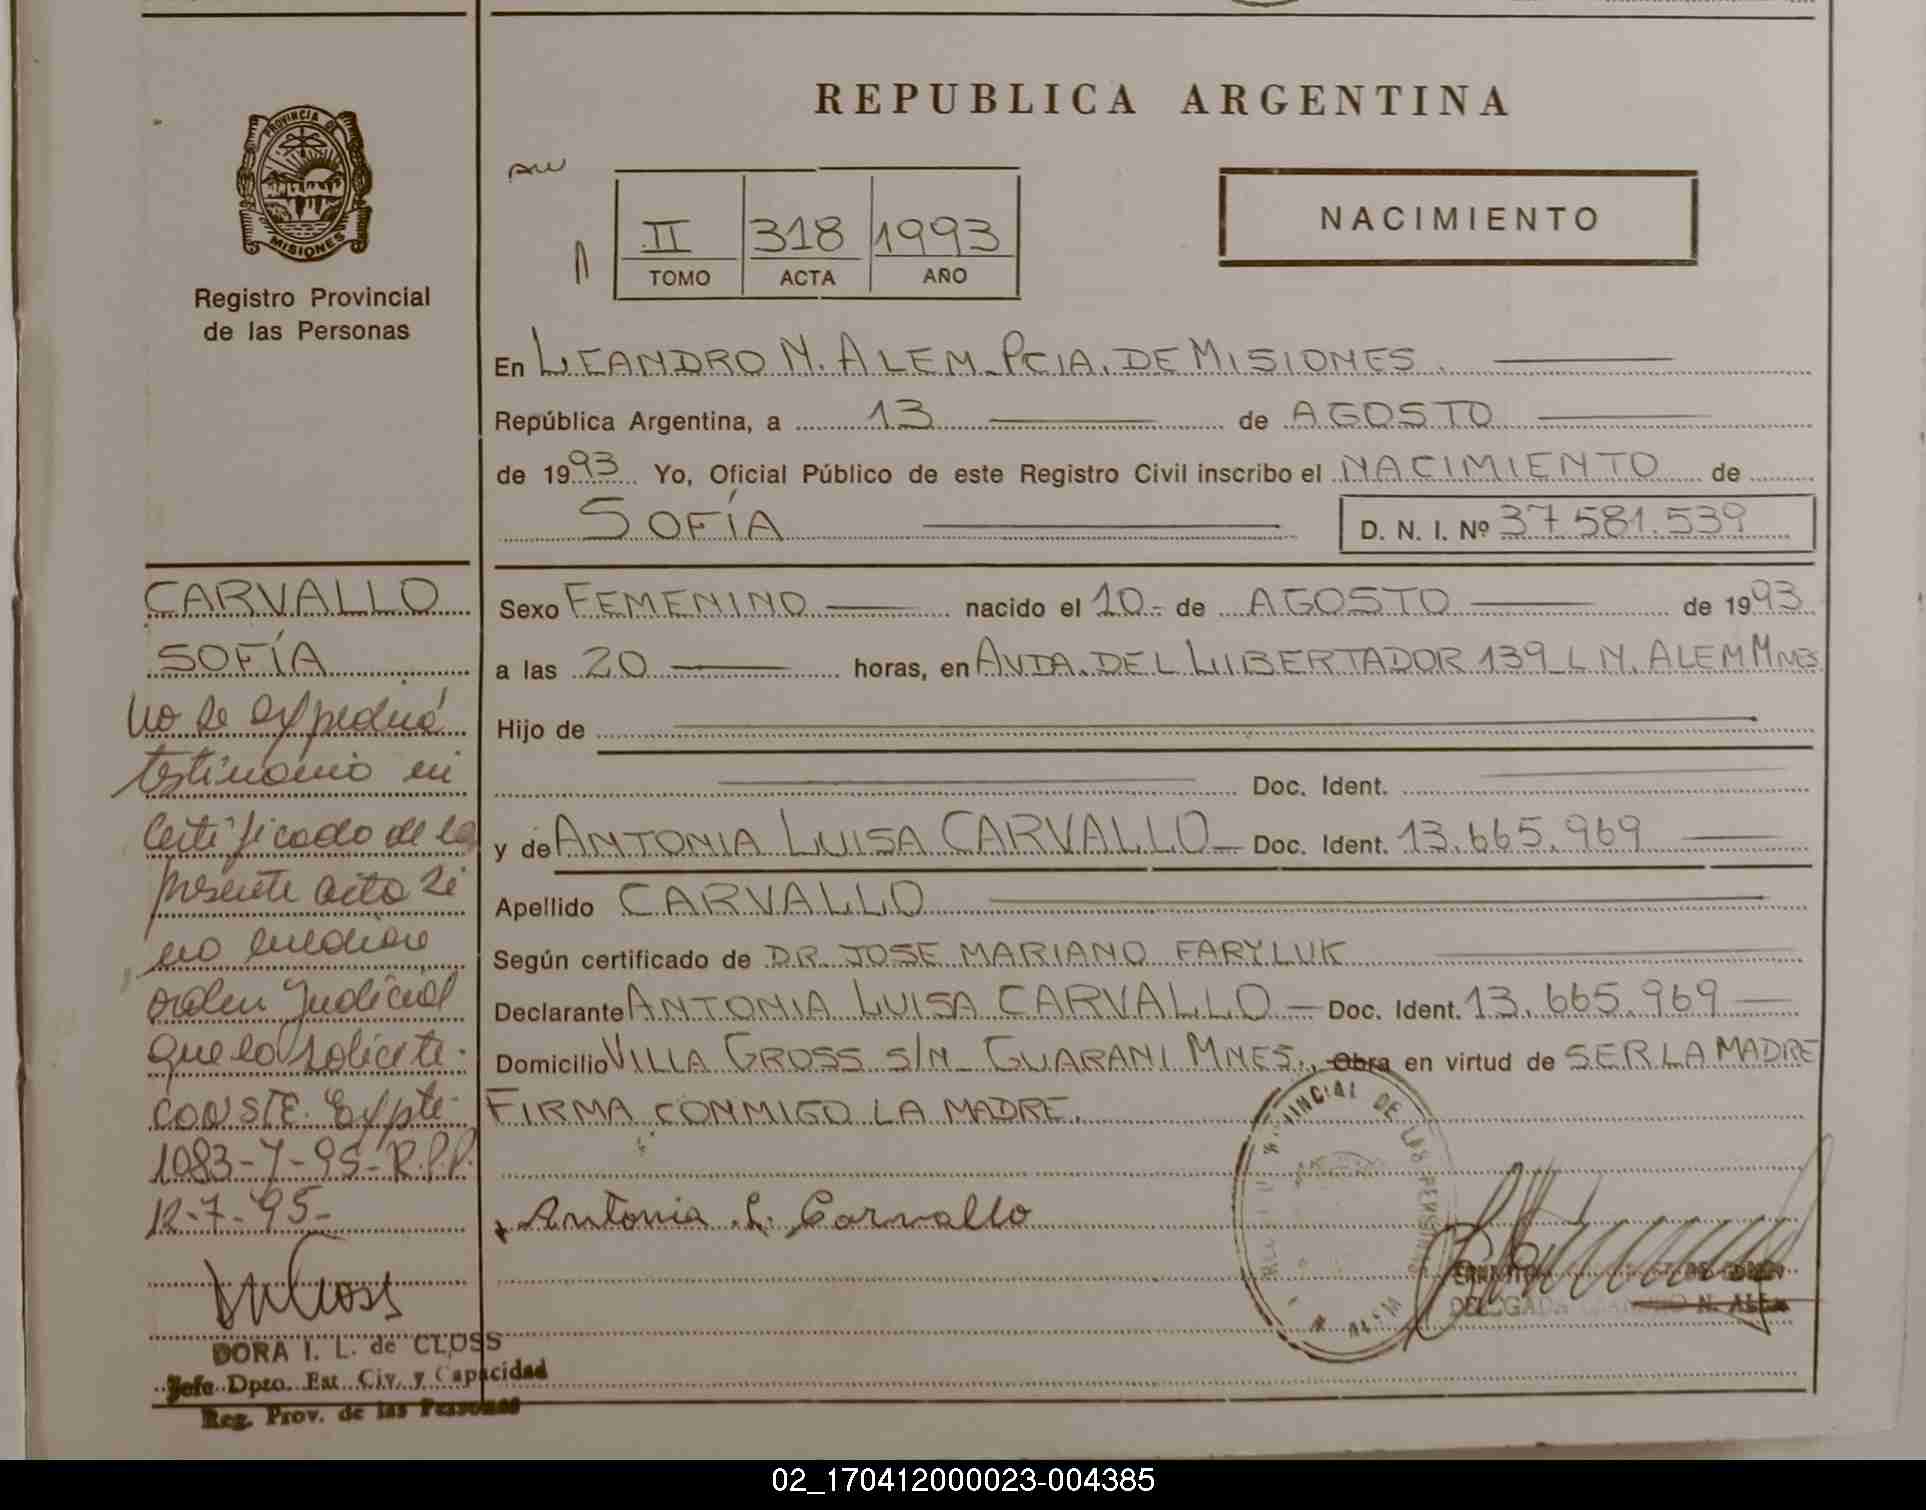 REPUBLICA ARGENTINA
PROVINCIA DE
MISIONES
Registro Provincial
de las Personas
II 318 1993
TOMO ACTA AÑO
NACIMIENTO
En LEANDRO N. ALEM_PCIA. DE MISIONES.
República Argentina, a 13 de AGOSTO
de 1993 Yo, Oficial Público de este Registro Civil inscribo el NACIMIENTO de
SOFÍA D. N. I. Nº 37.581.539
CARVALLO
SOFÍA
No se expedirá
testimonio ni
certificado de la
presente acta si
no mediare
orden judicial
que lo solicite.
CONSTE. Expte.
1083-7-95-R.P.P.
12-7-95-
DORA I. L. de CLOSS
Jefe Dpto. Est. Civ. y Capacidad
Reg. Prov. de las Personas
Sexo FEMENINO nacido el 10- de AGOSTO de 1993
a las 20 horas, en AVDA. DEL LIBERTADOR 139_L.N. ALEM MNES.
Hijo de
Doc. Ident.
y de ANTONIA LUISA CARVALLO_ Doc. Ident. 13.665.969
Apellido CARVALLO
Según certificado de DR. JOSE MARIANO FARYLUK
Declarante ANTONIA LUISA CARVALLO — Doc. Ident. 13.665.969
Domicilio VILLA GROSS S/N_ GUARANI MNES., Obra en virtud de SER LA MADRE
FIRMA CONMIGO LA MADRE.
Antonia L. Carvallo
DE LAS PERSONAS
N. ALEM
02_170412000023-004385